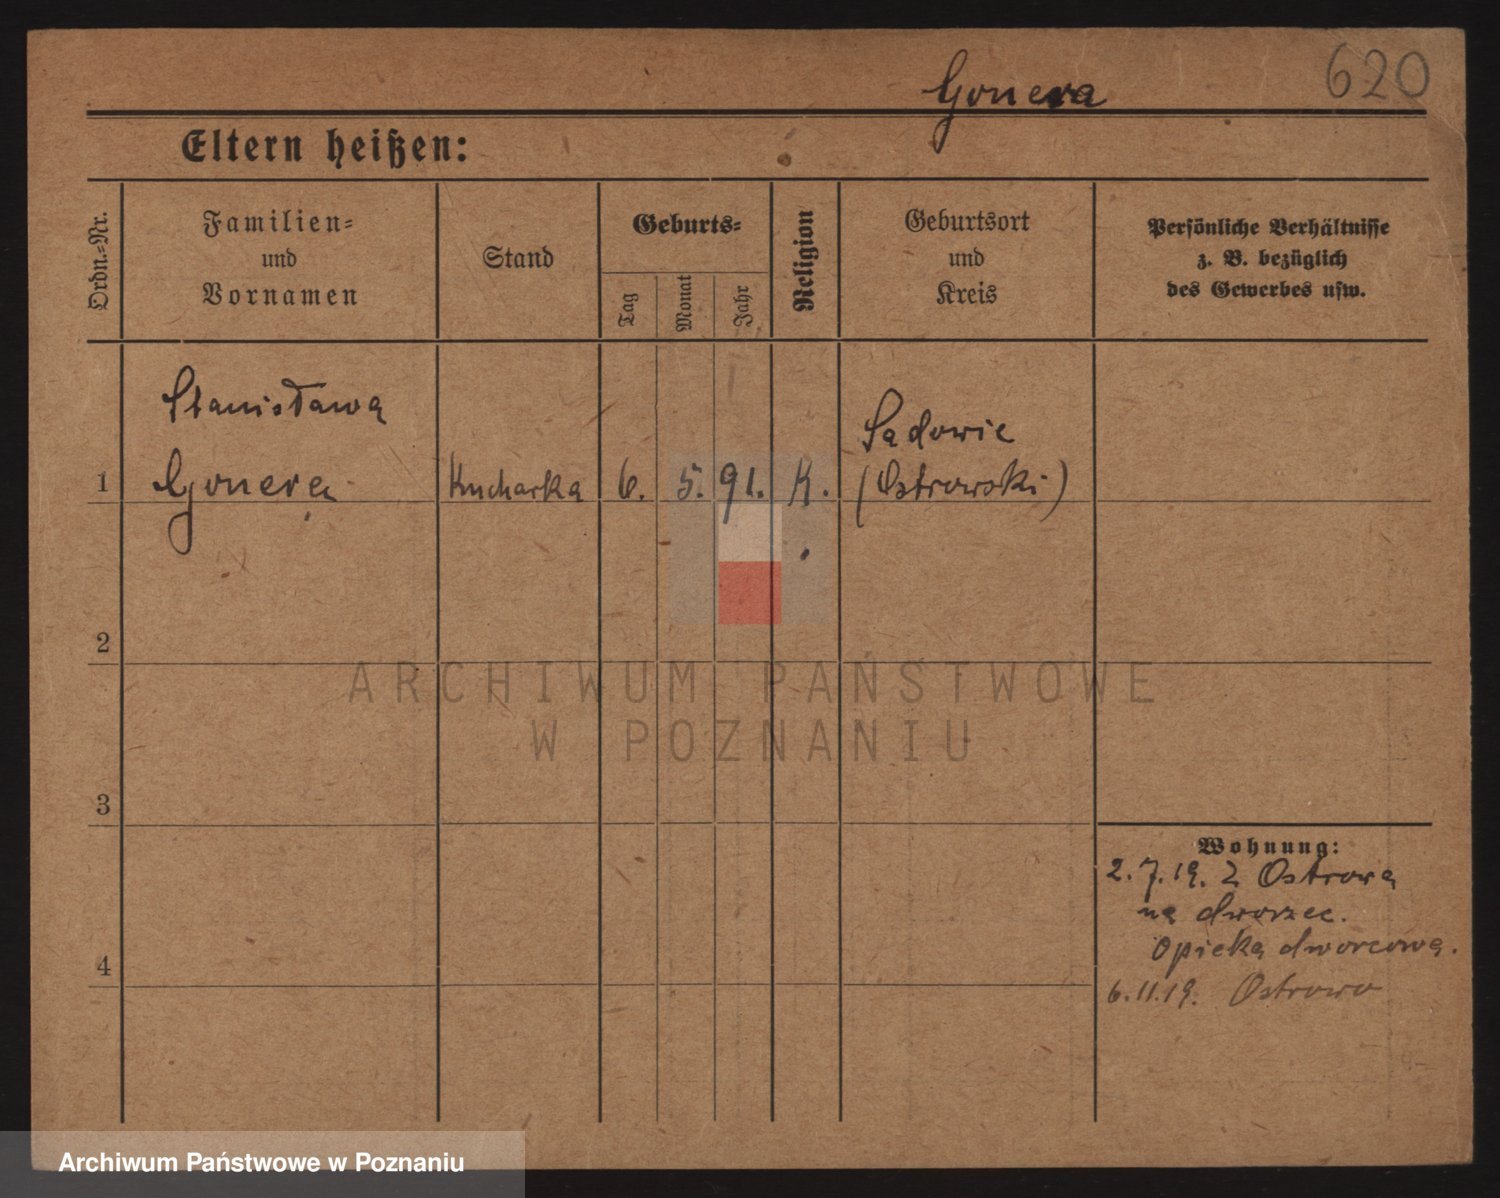 Gonera
620
Eltern heißen:
Ordn.-Nr.
Familien-
und
Vornamen
Stand
Geburts-
Tag
Monat
Jahr
Religion
Geburtsort
und
Kreis
Persönliche Verhältnisse
z. B. bezüglich
des Gewerbes usw.
Stanisława
Sadowie
1 Gonera Kucharka 6. 5. 91. K. (Ostrowski)
2
ARCHIWUM PAŃSTWOWE
W POZNANIU
3
Wohnung:
2.7.19. z Ostrowa
na dworzec.
Opieka dworcowa.
4
6.11.19. Ostrowo
Archiwum Państwowe w Poznaniu